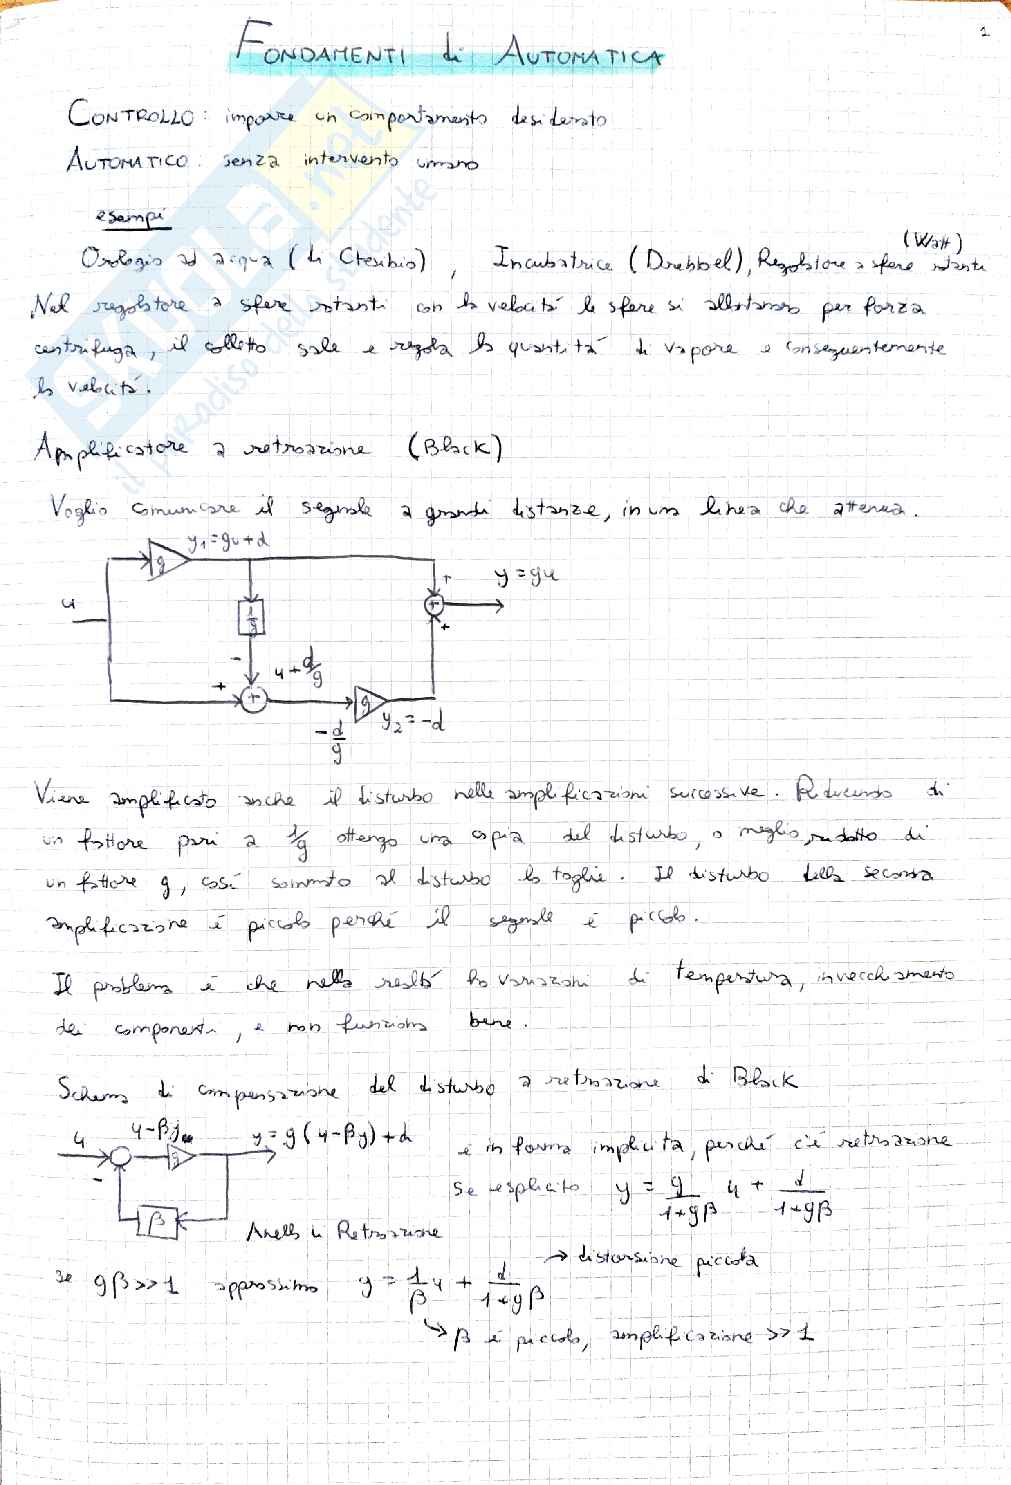 1
FONDAMENTI di AUTOMATICA
CONTROLLO: imporre un comportamento desiderato
AUTOMATICO: senza intervento umano
esempi
(Watt)
Orologio ad acqua (di Ctesibio), Incubatrice (Drebbel), Regolatore a sfere rotanti
Nel regolatore a sfere rotanti con la velocità le sfere si allontanano per forza
centrifuga, il colletto sale e regola la quantità di vapore e conseguentemente
la velocità.
Amplificatore a retroazione (Black)
Voglio comunicare il segnale a grandi distanze, in una linea che attenua.
y₁=gu+d
g
y=gu
u
+
1/g
+
+
-
u+d/g
+
+
g
-d/g
y₂=-d
Viene amplificato anche il disturbo nelle amplificazioni successive. Riducendo di
un fattore pari a 1/g ottengo una copia del disturbo, o meglio, ridotto di
un fattore g, così sommato al disturbo lo toglie. Il disturbo della seconda
amplificazione è piccolo perché il segnale è piccolo.
Il problema è che nella realtà ho variazioni di temperatura, invecchiamento
dei componenti, e non funziona bene.
Schema di compensazione del disturbo a retroazione di Black
u
u-βy
g
y=g(u-βy)+d
-
β
è in forma implicita, perché c'è retroazione
se esplicito y = g/(1+gβ) u + d/(1+gβ)
Anello di Retroazione
→ distorsione piccola
se gβ>>1 approssimo y = 1/β u + d/(1+gβ)
↳ β è piccolo, amplificazione >>1
skuola.net
il paradiso dello studente